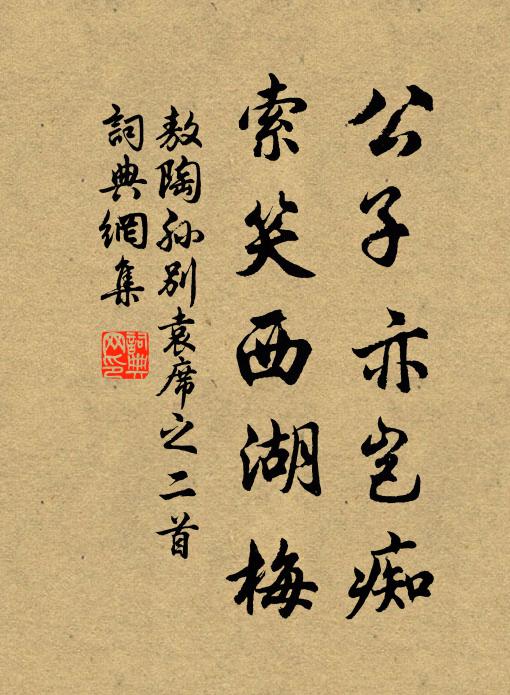 公子亦岂痴
索笑西湖梅
敖陶孙别袁席之二首
詞典網集
詞典网印